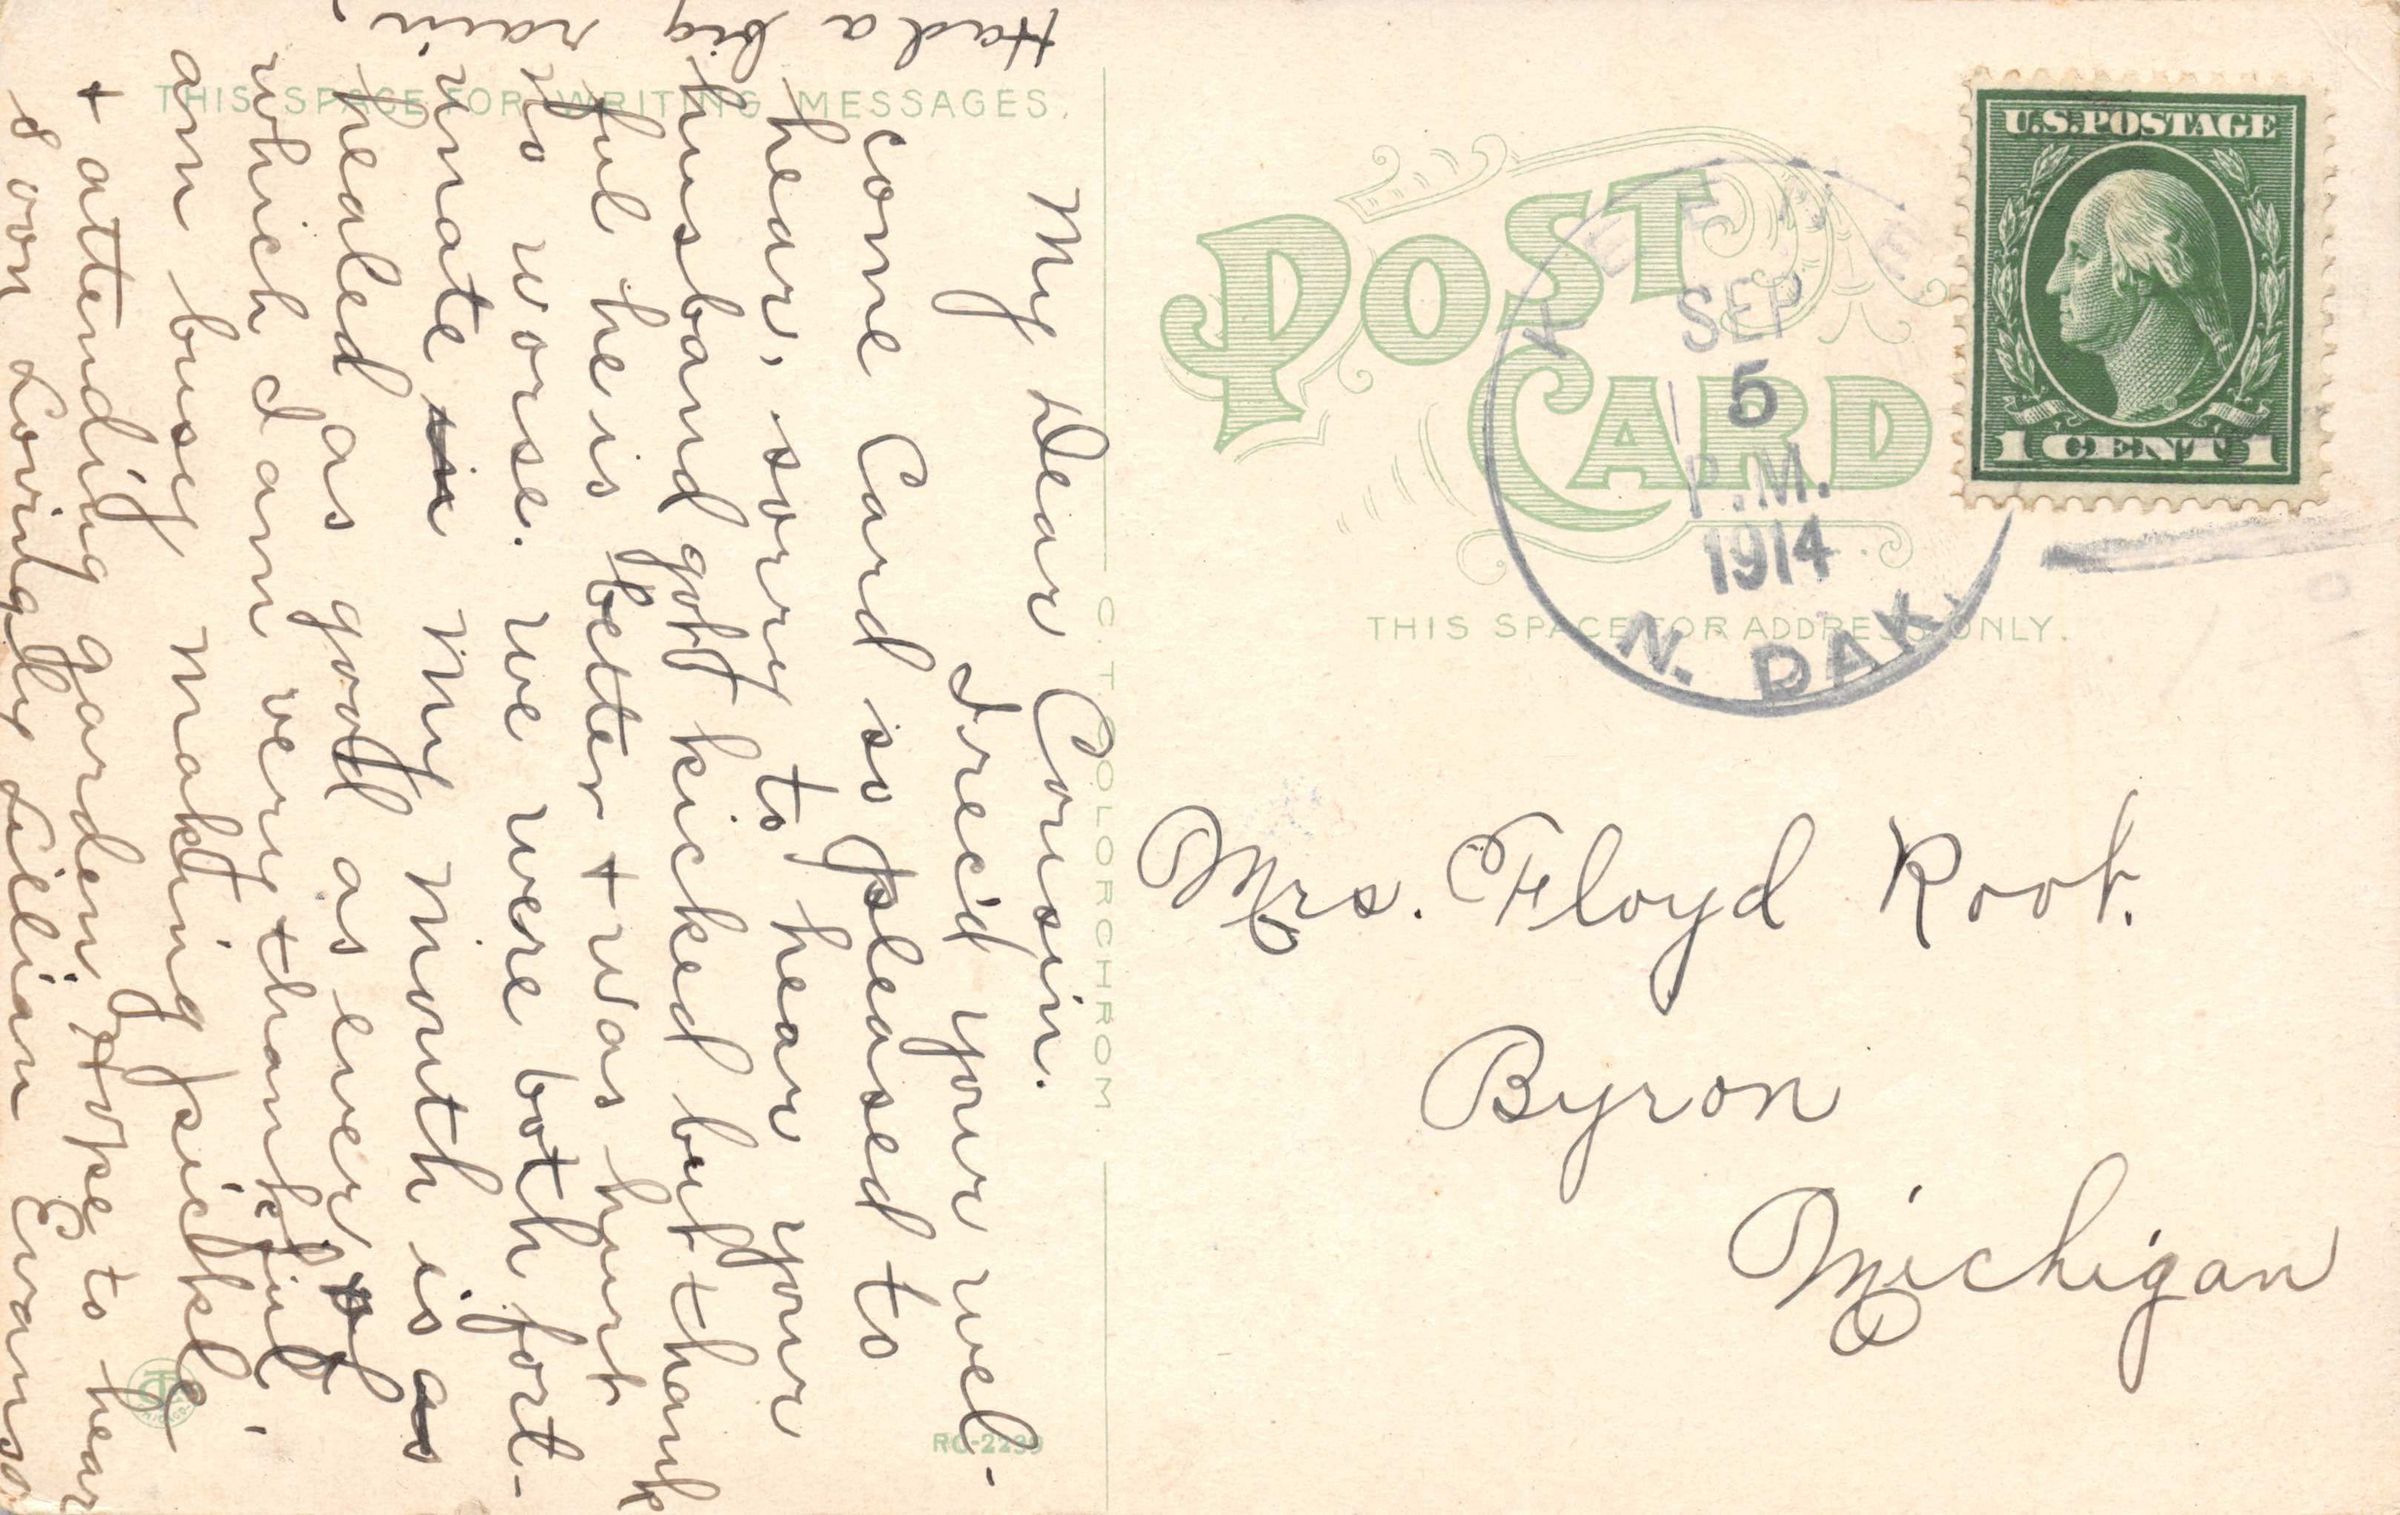 THIS SPACE FOR WRITING MESSAGES.
My Dear Cousin.
I rec'd your wel-
come Card so pleased to
hear, sorry to hear your
husband got kicked but thank
ful he is better + was hurt
no worse. we were both fort-
unate in my mouth is as
healed as good as ever
which I am very thankful.
am busy making pickle
+ attending garden, Hope to hear
soon Lovingly Lillian Evans
Had a big rain.
C. T. COLORCHROM
RC-2239
POST
CARD
THIS SPACE FOR ADDRESS ONLY.
U.S. POSTAGE
1 CENT 1
KEENE
SEP
5
P.M.
1914
N. DAK.
Mrs. Floyd Root.
Byron
Michigan